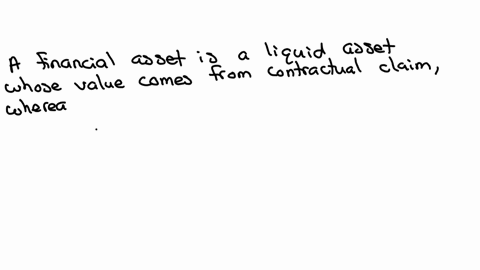 A financial asset is a liquid asset
whose value comes from contractual claim,
wherea